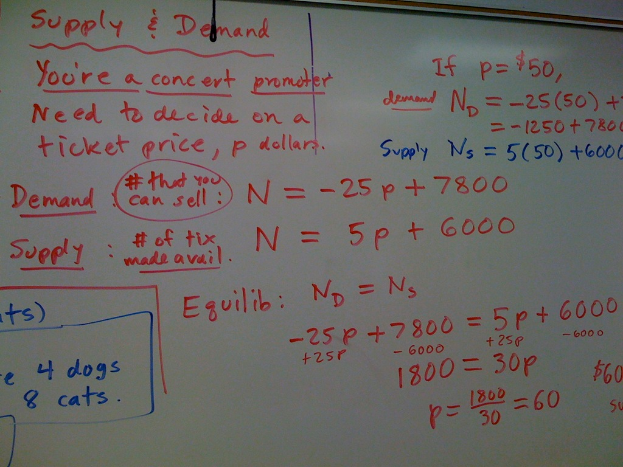 Supply & Demand
You're a concert promoter
Need to decide on a
ticket price, p dollars.
Demand : # that you can sell : N = -25p + 7800
Supply : # of tix made avail. N = 5p + 6000
Equilib: N_D = N_S
-25p + 7800 = 5p + 6000
+25p - 6000 +25p - 6000
1800 = 30p
p = 1800/30 = 60
If p = $50,
demand N_D = -25(50) +
= -1250 + 7800
Supply N_S = 5(50) + 6000
$60
ts)
4 dogs
8 cats.